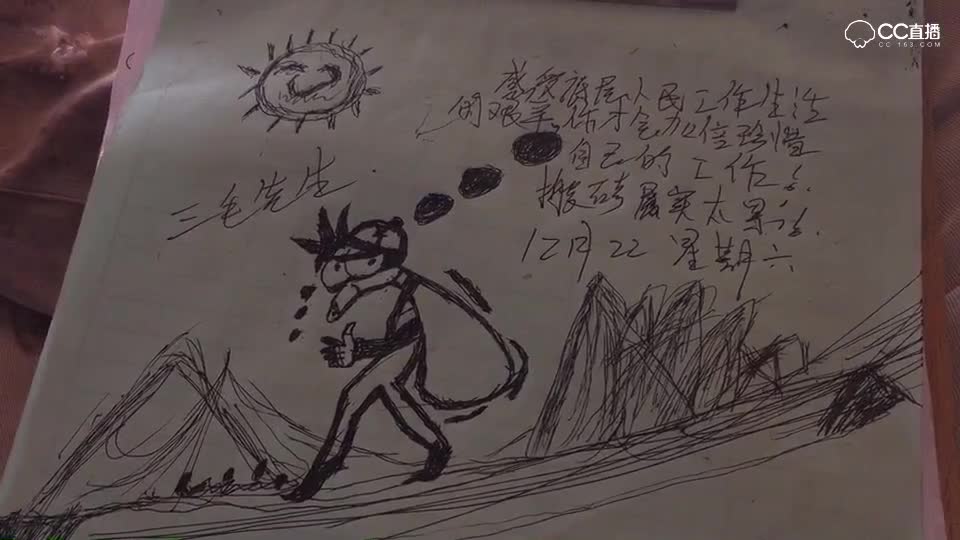 CC直播
CC.163.COM
感受底层人民工作生活
的艰辛,你才会加倍珍惜
自己的工作!
搬砖属实太累了!
12月22 星期六
三毛先生